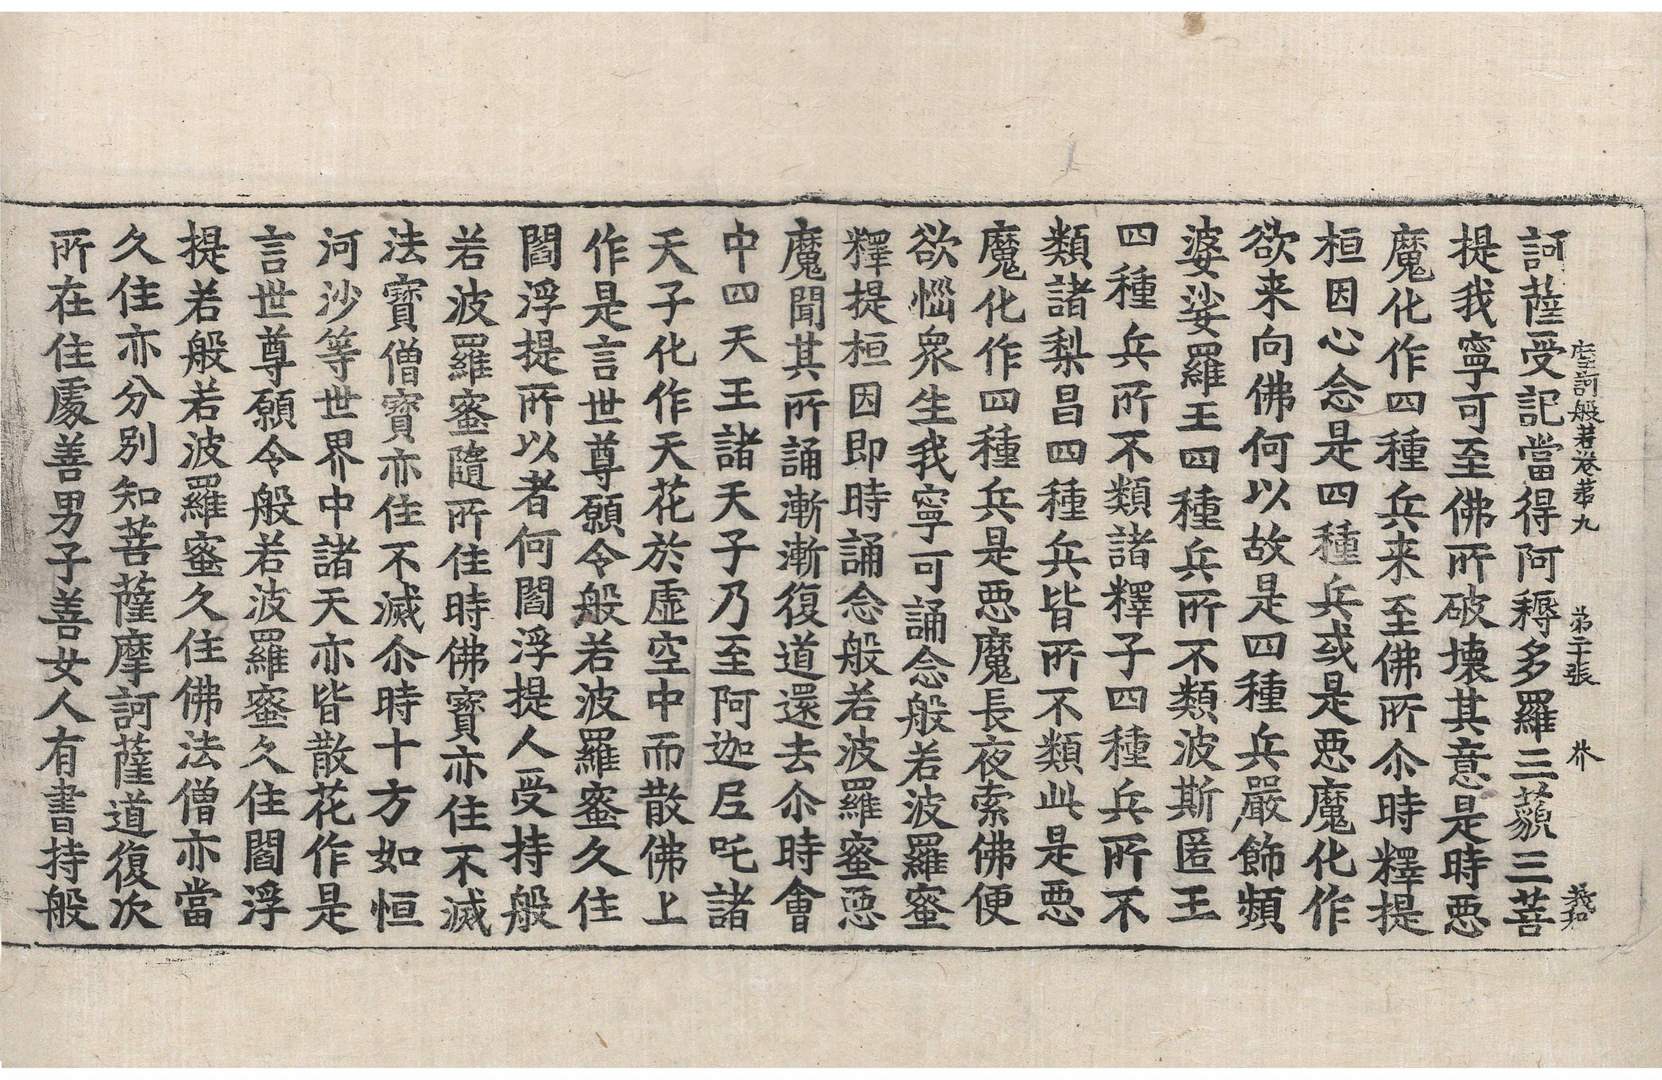 摩訶般若卷第九　第二十張　芥　義和
訶薩受記當得阿耨多羅三藐三菩
提我寧可至佛所破壞其意是時惡
魔化作四種兵来至佛所尒時釋提
桓因心念是四種兵或是惡魔化作
欲来向佛何以故是四種兵嚴飾頻
婆娑羅王四種兵所不類波斯匿王
四種兵所不類諸釋子四種兵所不
類諸梨昌四種兵皆所不類此是惡
魔化作四種兵是惡魔長夜索佛便
欲惱衆生我寧可誦念般若波羅蜜
釋提桓因即時誦念般若波羅蜜惡
魔聞其所誦漸漸復道還去尒時會
中四天王諸天子乃至阿迦尼吒諸
天子化作天花於虛空中而散佛上
作是言世尊願令般若波羅蜜久住
閻浮提所以者何閻浮提人受持般
若波羅蜜隨所住時佛寶亦住不滅
法寶僧寶亦住不滅尒時十方如恒
河沙等世界中諸天亦皆散花作是
言世尊願令般若波羅蜜久住閻浮
提若般若波羅蜜久住佛法僧亦當
久住亦分別知菩薩摩訶薩道復次
所在住處善男子善女人有書持般